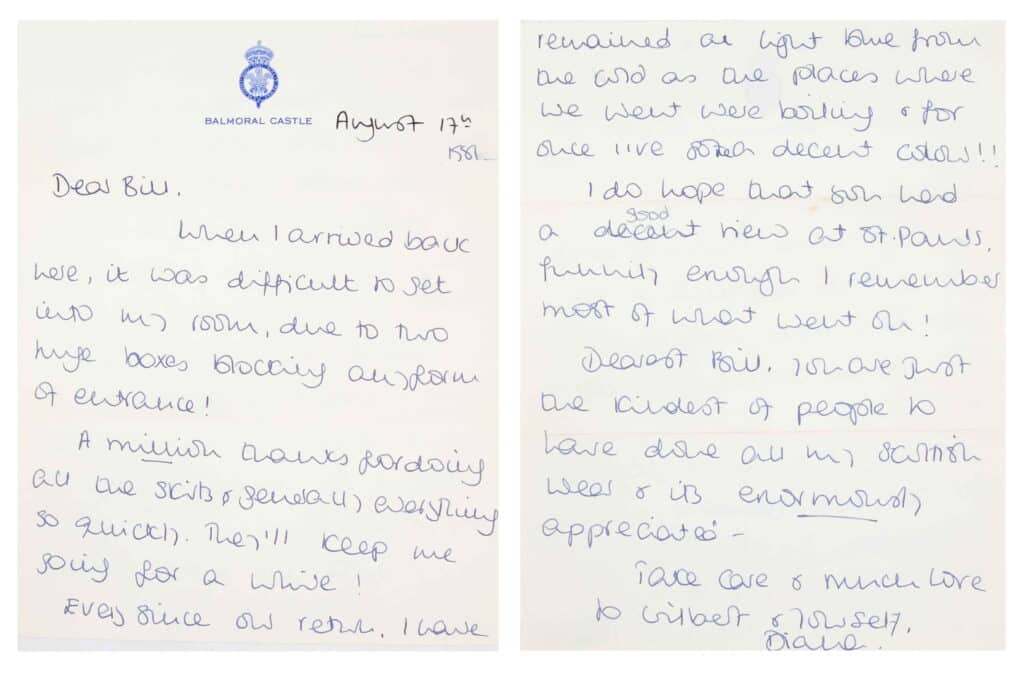 BALMORAL CASTLE
August 17th
1981
Dear Bill.
When I arrived back
here, it was difficult to get
into my room, due to two
huge boxes blocking any form
of entrance!
A million thanks for doing
all the skirts & generally everything
so quickly. They'll keep me
going for a while!
Every since our return, I have
remained a light blue from
the cold as the places where
we went were boiling & for
once I've decent colour!!
I do hope that you had
good
a decent view at St. Pauls,
funnily enough I remember
most of what went on!
Dearest Bill, you are just
the kindest of people to
have done all my Scottish
wear & its enormously
appreciated -
Take care & much love
to Wilbert & yourself,
Diana.